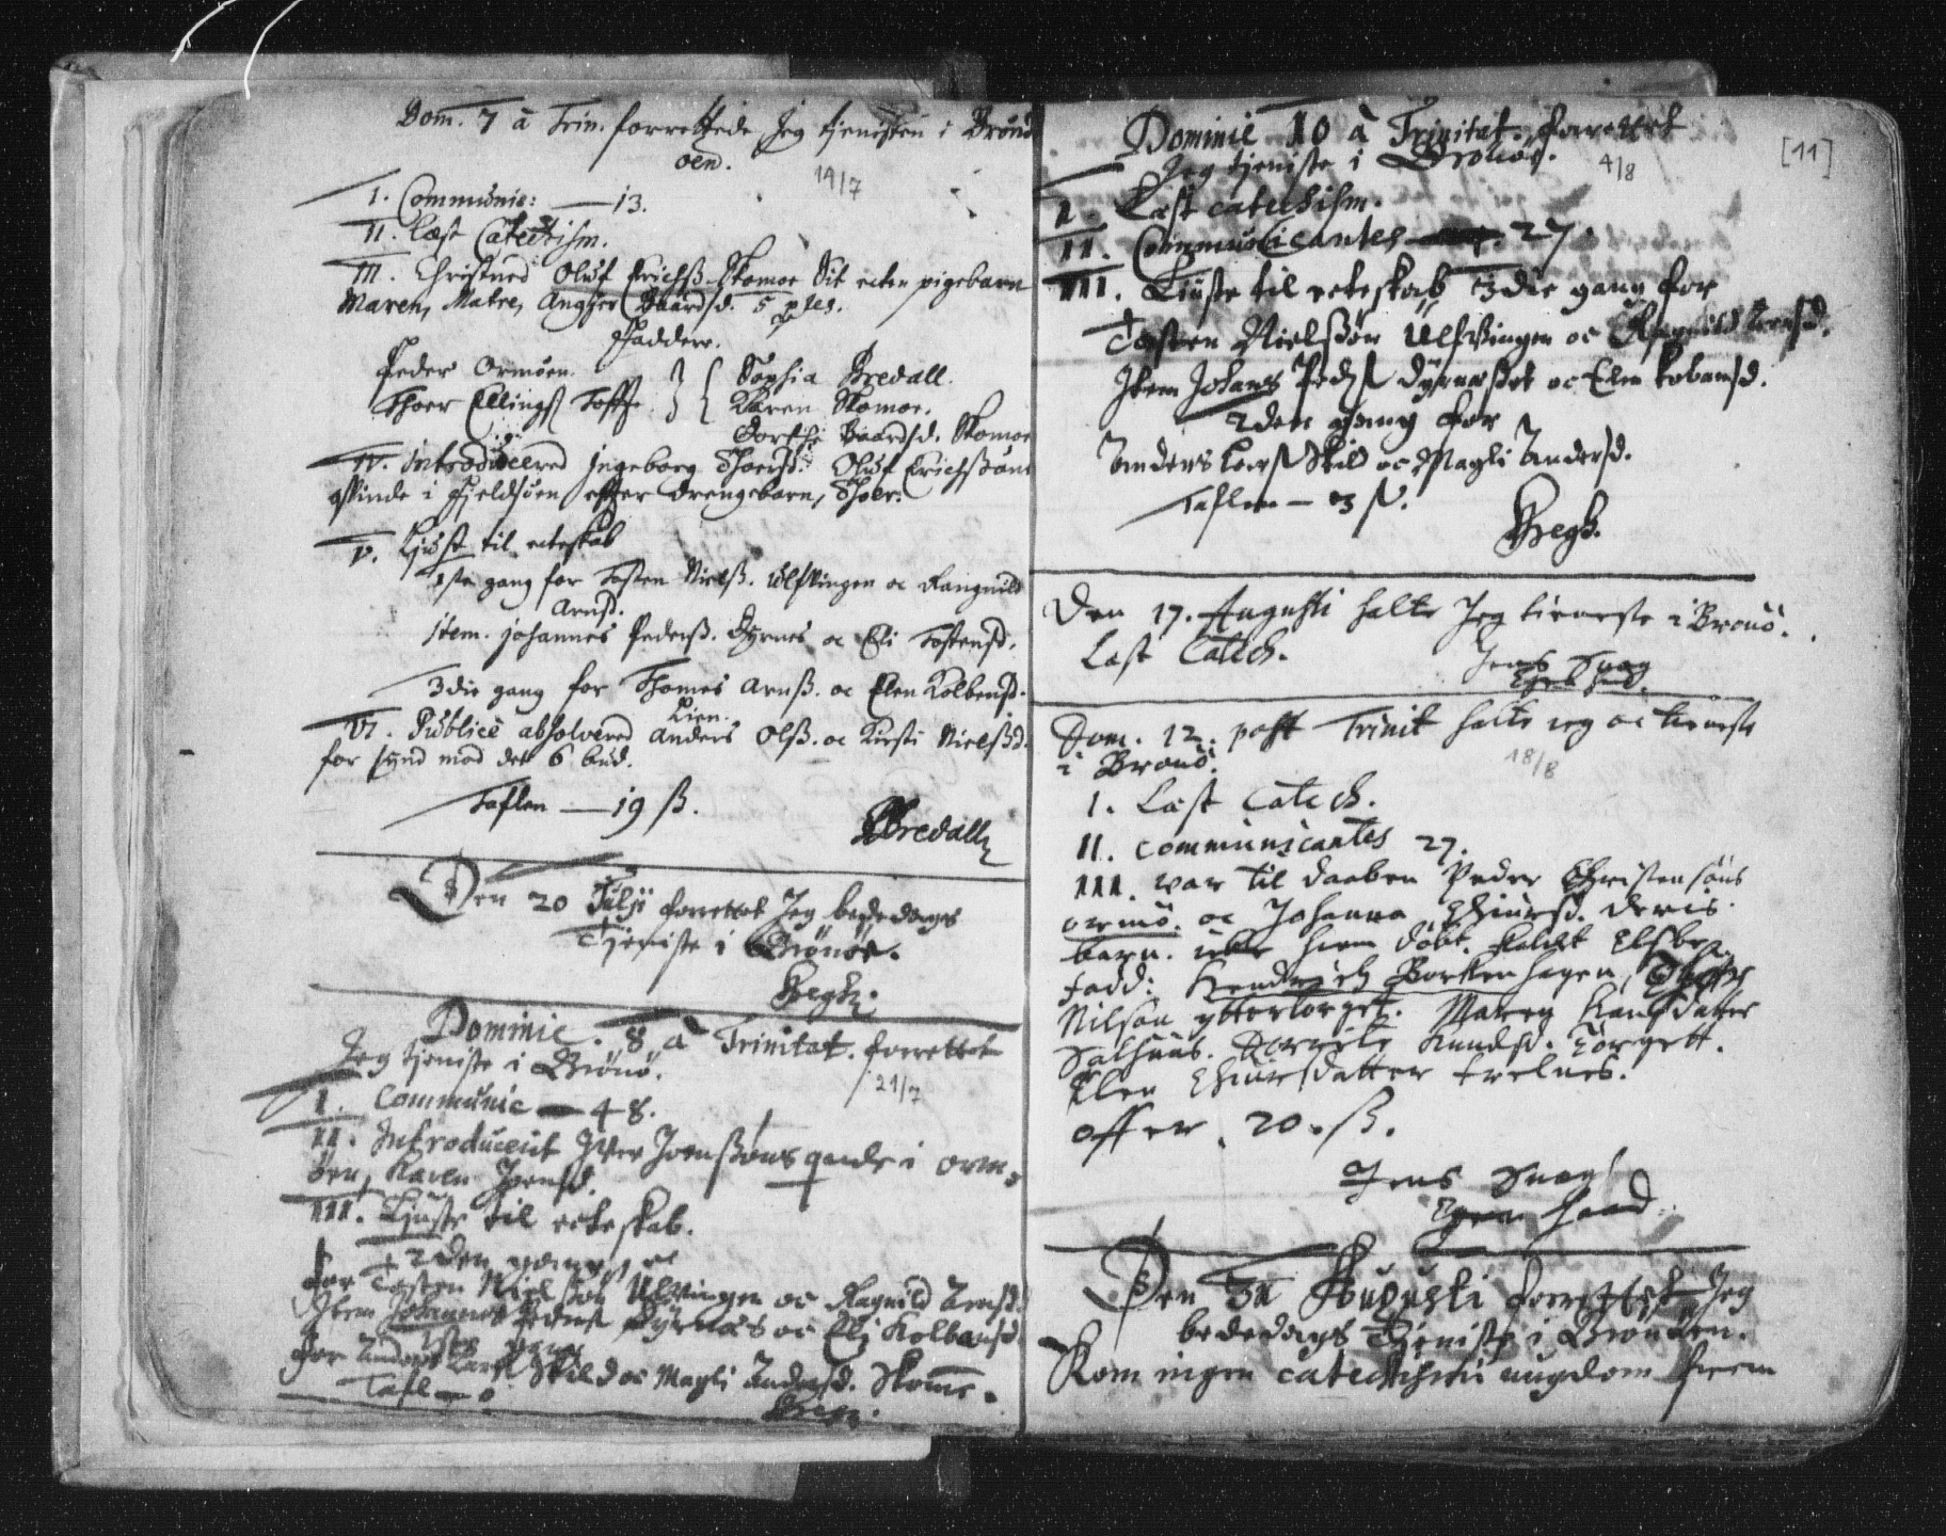 Dom. 7 à Trin. forrettede Jeg tjenisten i Brönd
öen.
14/7
I. Communic: — 13.
II. læst Catechism.
III. Christned Oluf Erichß. Skomoe Sit ecten pigebarn
Maren, Matre, Baardsd. 5
Faddere.
Peder Ormöen. Sophia Bredall.
Thoer Ellingß Karen Skomoe.
Baardsd. Skomoe
IV. introducered Jngeborg Thoersd. Oluf Erichßöns
qvinde i Fjeldsöen effter drengebarn, Thoer.
V. Liust til ecteskab
1ste gang for Tosten Nielß. Ulfvingen oc Rangnild
Arnsd.
item. johannes Pederß. Dyrnes oc Eli Tostensd.
3die gang for Thomes Arnß. oc Elen Kolbensd.
Lien.
VI. Publicè absolvered Anders Olß. oc Kirsti Nielßd.
for synd mod det 6 bud.
Taflen — 19 ß.
Bredall
Den 20 Julji forrettet Jeg bededages
Tjeniste i Brönöe.
Dominic. 8 à Trinitat. forrettet
Jeg tjeniste i Brönö.
21/7
I. Communic — 48.
II. Introducerit Iver Joenßöns qvinde i Orm-
öen, Karen Joensd.
III. Liuste til ecteskab.
2den gang
for Tosten Nielßön Ulvingen oc Ragnild Arnsd.
Item Johannes Pederß Dyrnæs oc Eli Kolbensd.
1ste gang
for Anders Larß Skild oc Magli Andersd. Skomoe.
Tafl — 0
[11]
Dominic 10 à Trinitat. forrettet
Jeg tjeniste i Brönöe.
4/8
I. Læst catechism.
II. Communicantes 27.
III. Liuste til ecteskab 3die gang for
Tosten Nielßön Ulfvingen oc Ragnild Arnsd.
Item Johans Pedß Dyrnæßet oc Elen Kobensd.
2den gang for
Anders Larß Skild oc Magli Andersd.
Taflen — 3 ß.
Den 17. Augusti holte Jeg tieneste i Brönö.
Læst Catech.
Jens Snog
Egen hand.
Dom. 12. post Trinit holte ieg oc tieneste
i Brönö.
18/8
I. Læst Catech.
II. Communicantes 27.
III. war til daaben Peder Christensöns
Ormö. oc Johanna deris
barn. hiem döbt. kaldet Elsbe
fadd: Hendrich Borkenhagen,
Nilsön yttertorget. Maren Hansdatter
Salhuus. Knudsd. Torgett.
Elen datter Trelnes.
offer. 20. ß.
Jens Snog
Egen haand.
Den 31 Augusti forrettet Jeg
bededags Tjeniste i Brönöen.
Kom ingen catechismi ungdom frem